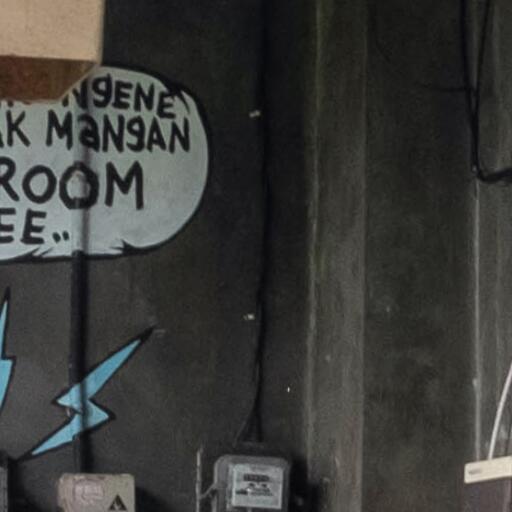 NGENE
AK MANGAN
ROOM
EE..